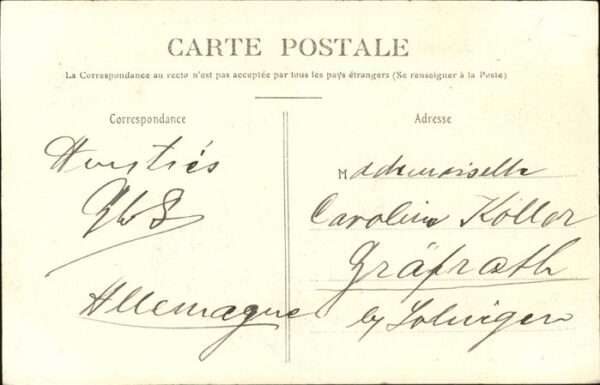 CARTE POSTALE
La Correspondance au recto n'est pas acceptée par tous les pays étrangers (Se renseigner à la Poste)
Correspondance
Allemagne
Adresse
Mademoiselle
Caroline Koller
Gräfrath
by Solingen